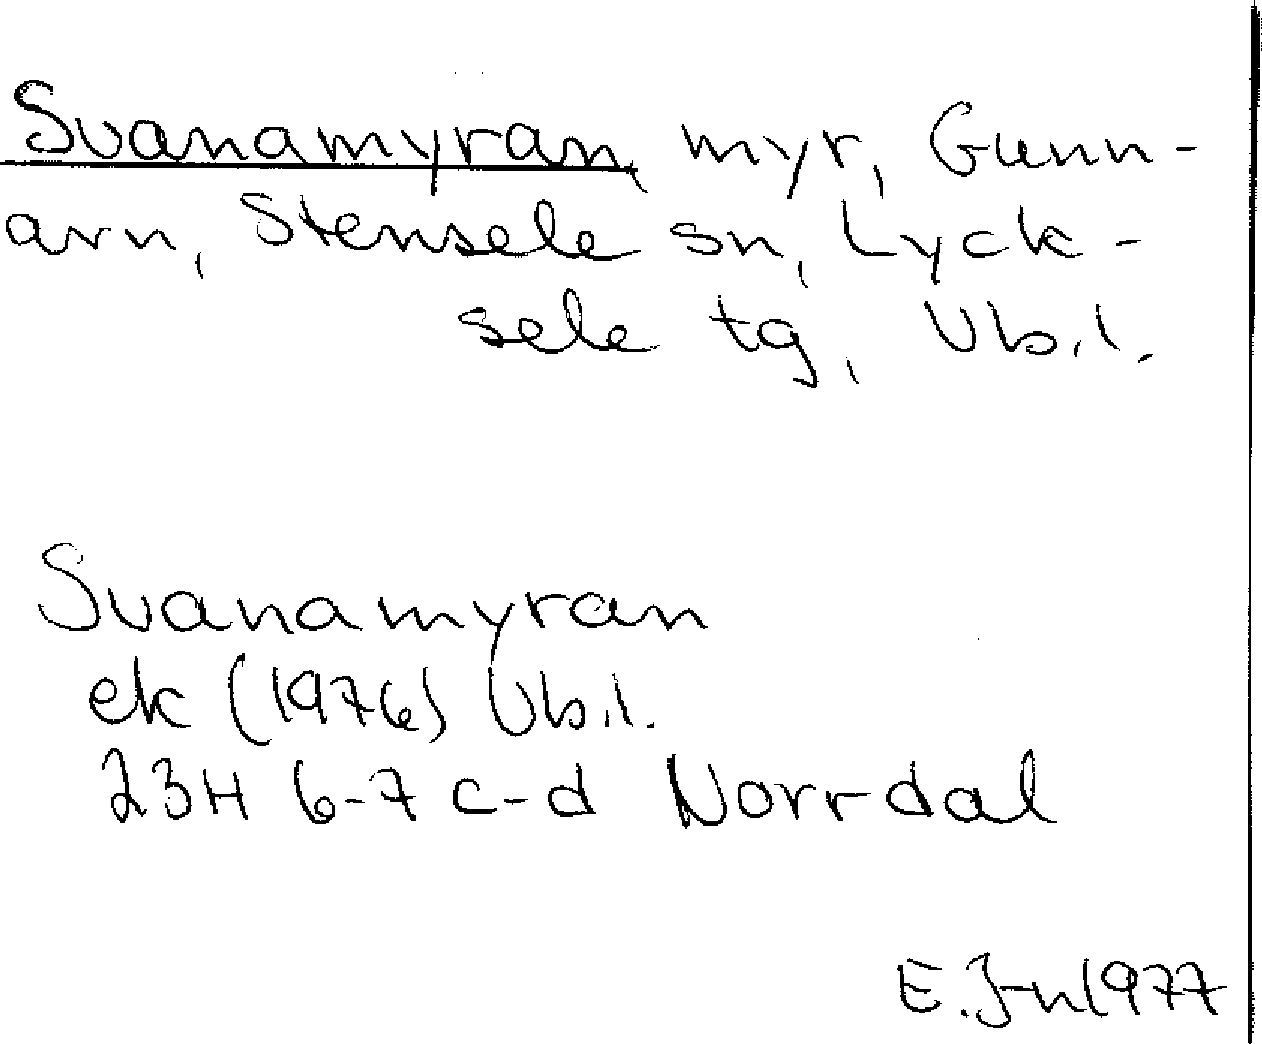 Svanamyran, myr, Gunn-
arn, Stensele sn, Lyck-
sele tg, Vb.l.
Svanamyran
ek (1976) Vb.l.
23H 6-7 c-d Norrdal
E.J-n 1977